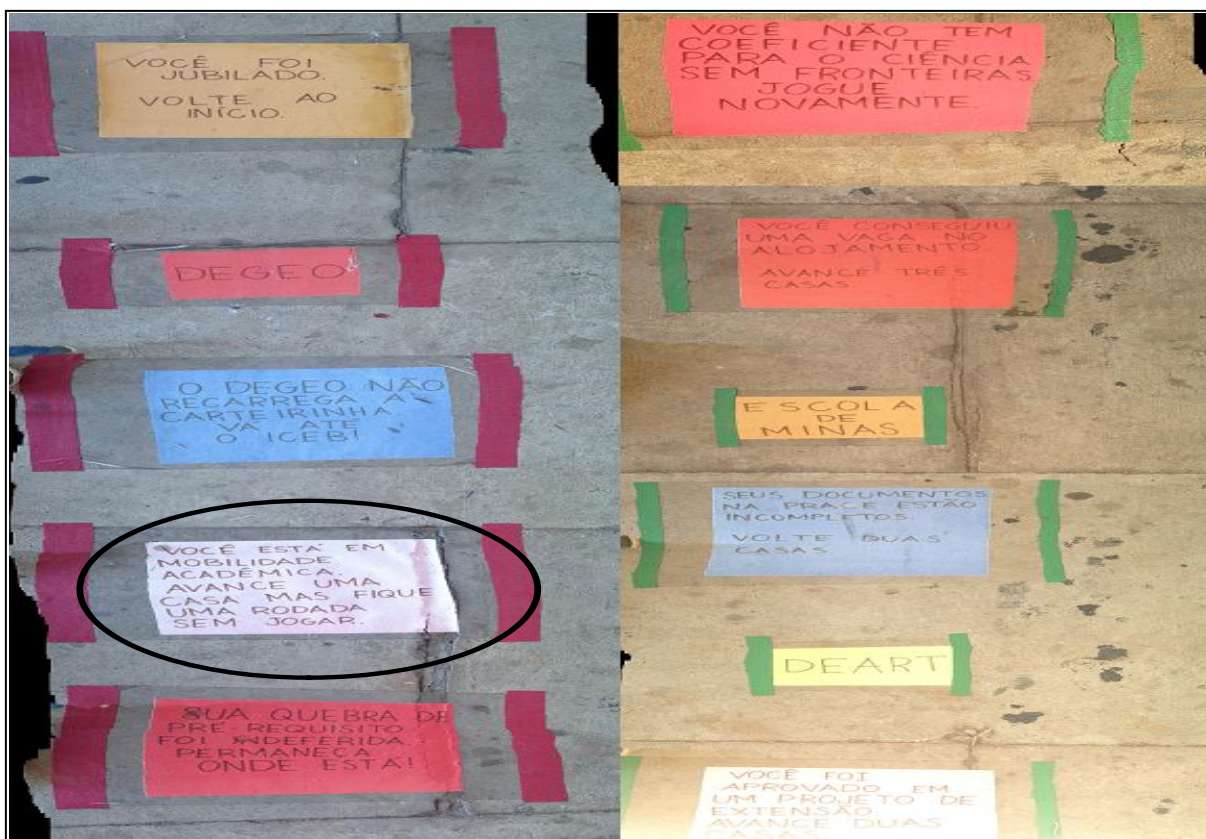 VOCÊ FOI
JUBILADO.
VOLTE AO
INÍCIO.
DEGEO
O DEGEO NÃO
RECARREGA A
CARTEIRINHA
VÁ ATÉ
O ICEB!
VOCÊ ESTÁ EM
MOBILIDADE
ACADÊMICA.
AVANCE UMA
CASA MAS FIQUE
UMA RODADA
SEM JOGAR.
SUA QUEBRA DE
PRÉ REQUISITO
FOI INDEFERIDA.
PERMANEÇA
ONDE ESTÁ!
VOCÊ NÃO TEM
COEFICIENTE
PARA O CIÊNCIA
SEM FRONTEIRAS.
JOGUE
NOVAMENTE.
VOCÊ CONSEGUIU
UMA VAGA NO
ALOJAMENTO
AVANCE TRÊS
CASAS.
ESCOLA
DE
MINAS
SEUS DOCUMENTOS
NA PRACE ESTÃO
INCOMPLETOS.
VOLTE DUAS
CASAS
DEART
VOCÊ FOI
APROVADO EM
UM PROJETO DE
EXTENSÃO.
AVANCE DUAS
CASAS